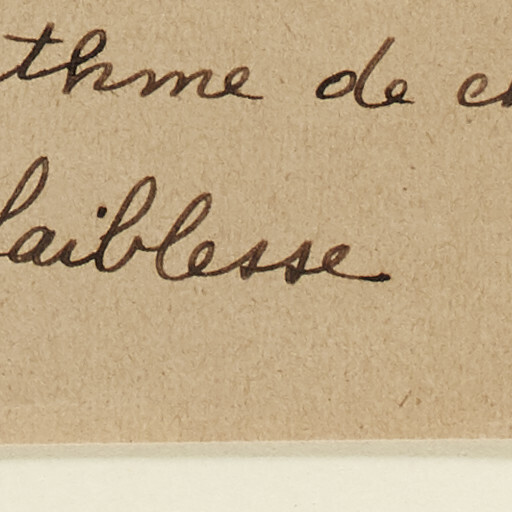 thme de c
faiblesse